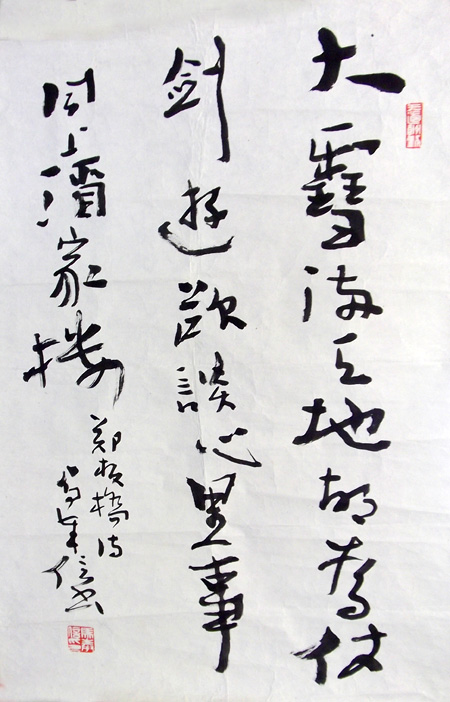 大雪满天地胡為仗
剑遊欲談心里事
同上酒家楼
郑板橋诗